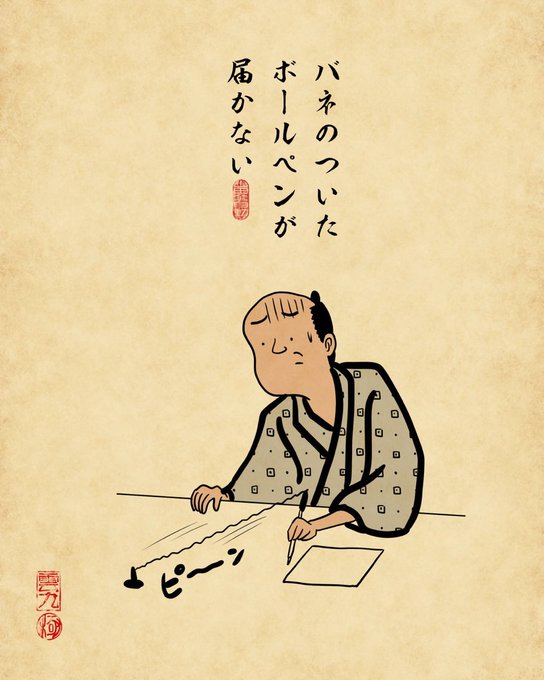 バネのついた
ボールペンが
届かない
ピーン